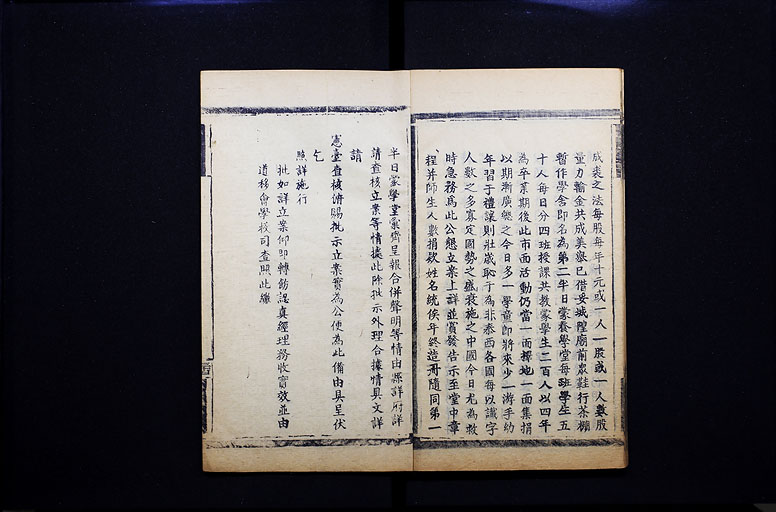 成裘之法每股每年十元或一人一股或一人數股
量力輸金共成美舉已借妥城隍廟前眾鞋行茶棚
暫作學舍即名為第二半日蒙養學堂每班學生五
十人每日分四班授課共教蒙學生二百人以四年
為卒業期後此市面活動仍當一面擇地一面集捐
以期漸廣興之今日多一學童即將來少一游手幼
年習于禮讓則壯歲恥于為非泰西各國每以識字
人數之多寡定國勢之盛衰施之中國今日尤為救
時急務為此公懇立案上詳並賞發告示至堂中章
程并師生人數捐欵姓名統俟年終造冊隨同第一
半日蒙學堂彙齊呈報合併聲明等情由縣詳府詳
請查核立案等情據此除批示外理合據情具文詳
請
憲臺查核俯賜批示立案實為公便為此備由具呈伏
乞
照詳施行
批如詳立案仰即轉飭認真經理務收實效並由
道移會學校司查照此繳